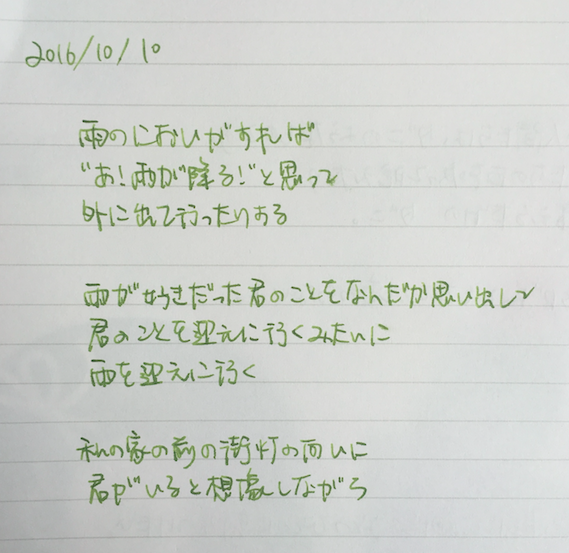 2016/10/10
雨のにおいがすれば
"あ!雨が降る!"と思って
外に出て行ったりする
雨が好きだった君のことをなんだか思い出して
君のことを迎えに行くみたいに
雨を迎えに行く
私の家の前の街灯の向いに
君がいると想像しながら